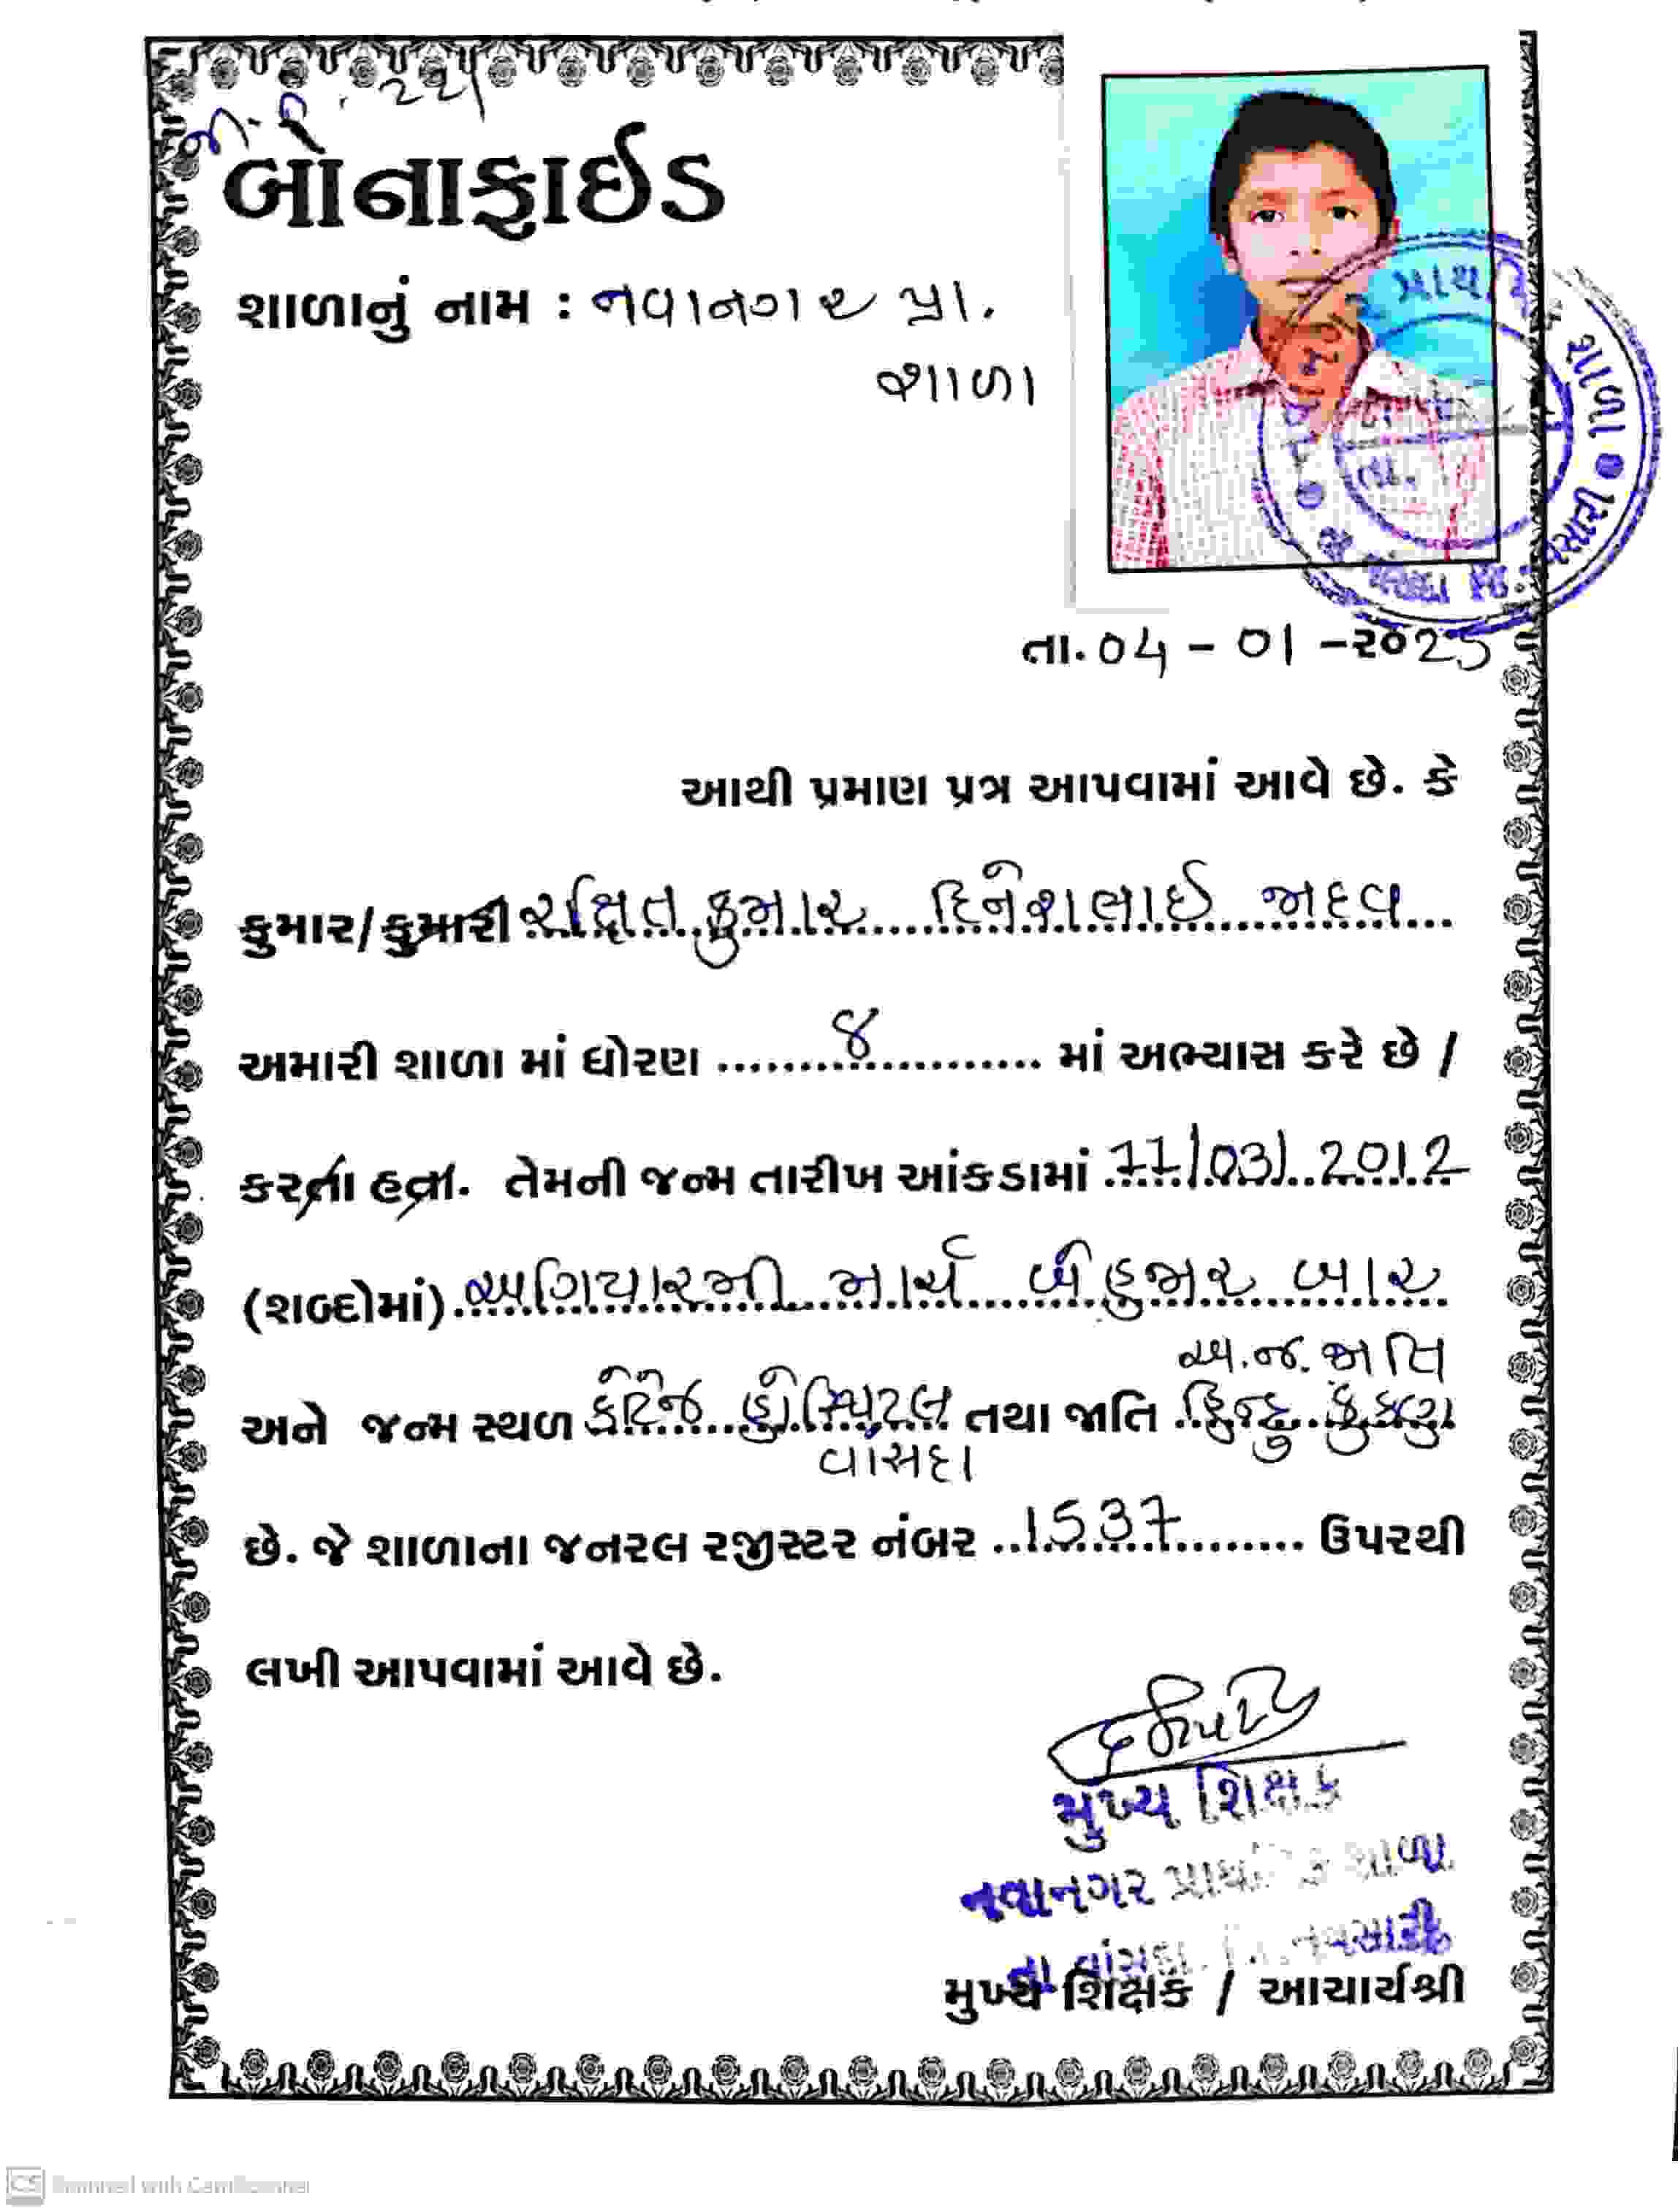 જા.નં. 221
બોનાફાઈડ
શાળાનું નામ : નવાનગર પ્રા.
શાળા
પ્રાથમિક શાળા
તા.
તા. 04 - 01 -૨૦25
આથી પ્રમાણ પત્ર આપવામાં આવે છે. કે
કુમાર/કુમારી રક્ષિતકુમાર દિનેશભાઈ જાદવ
અમારી શાળા માં ધોરણ ........ ૪ ........ માં અભ્યાસ કરે છે /
કરતા હતા. તેમની જન્મ તારીખ આંકડામાં 11/03/2012
(શબ્દોમાં) અગિયારમી માર્ચ બેહજાર બાર
અ.જ.જાતિ
અને જન્મ સ્થળ કોટેજ હોસ્પિટલ તથા જાતિ હિન્દુ કુકણા
વાંસદા
છે. જે શાળાના જનરલ રજીસ્ટર નંબર ..1537........ ઉપરથી
લખી આપવામાં આવે છે.
મુખ્ય શિક્ષક
નવાનગર પ્રાથમિક શાળા
તા વાંસદા જિ.નવસારી
મુખ્ય શિક્ષક / આચાર્યશ્રી
CS Scanned with CamScanner